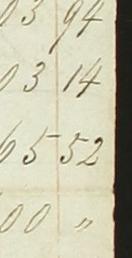 03 94
03 14
65 52
00 "